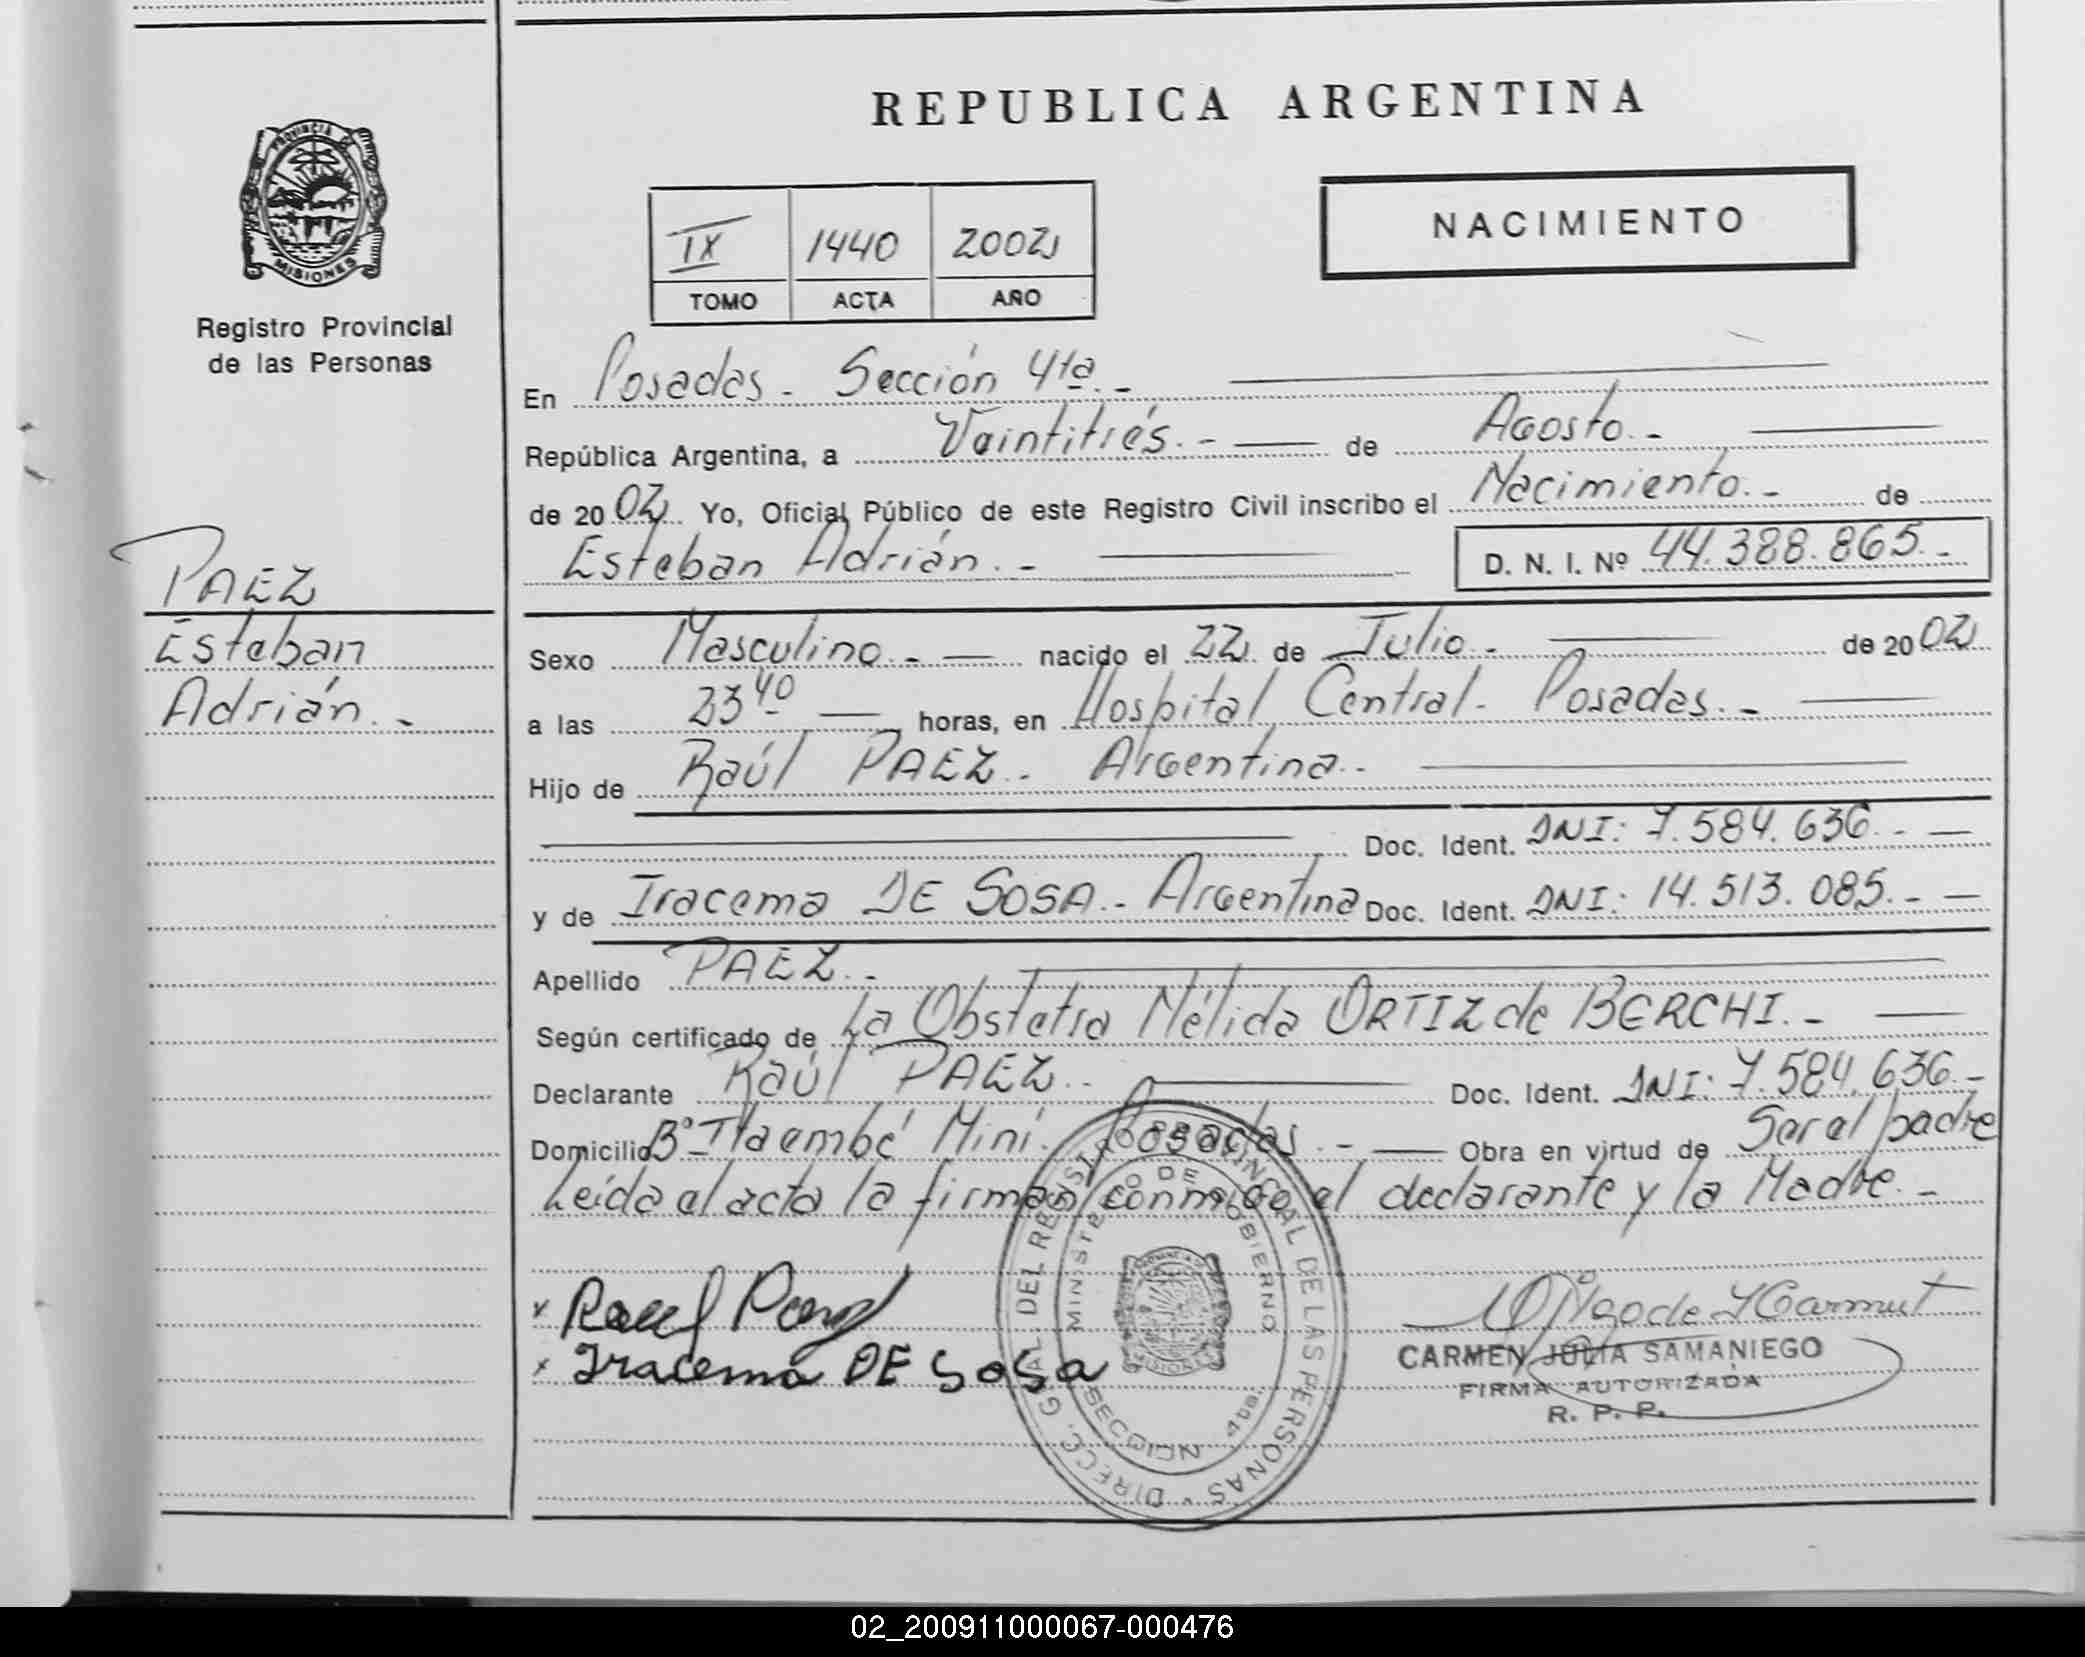 REPUBLICA ARGENTINA
PROVINCIA
MISIONES
Registro Provincial
de las Personas
NACIMIENTO
IX 1440 2002
TOMO ACTA AÑO
En Posadas - Sección 4ta. -
República Argentina, a Veintitrés. - de Agosto. -
de 2002 Yo, Oficial Público de este Registro Civil inscribo el Nacimiento. - de
Esteban Adrián. - D. N. I. Nº 44.388.865. -
PAEZ
Esteban
Adrián. -
Sexo Masculino. - nacido el 22 de Julio. - de 2002
a las 23 40 horas, en Hospital Central - Posadas. -
Hijo de Raúl PAEZ. - Argentina. -
Doc. Ident. DNI: 7.584.636. -
y de Iracema DE SOSA. - Argentina Doc. Ident. DNI: 14.513.085. -
Apellido PAEZ. -
Según certificado de La Obstetra Nélida ORTIZ de BERCHI. -
Declarante Raúl PAEZ. - Doc. Ident. DNI: 7.584.636. -
Domicilio Bº Itaembé Miní. Posadas. - Obra en virtud de Ser el padre
Leída el acta la firman conmigo el declarante y la Madre. -
x Raul Paez
x Iracema DE SoSa
CARMEN JULIA SAMANIEGO
FIRMA AUTORIZADA
R. P. P.
DIRECC. GRAL. DEL REGISTRO PROVINCIAL DE LAS PERSONAS
MINISTERIO DE GOBIERNO
SECCION 4ta.
02_200911000067-000476